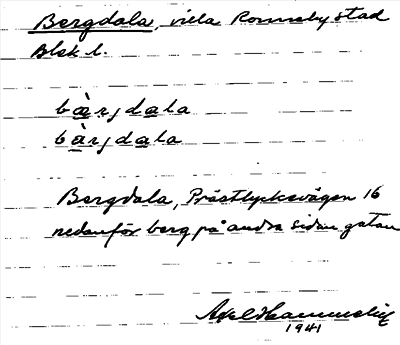 Bergdala, villa Ronneby stad
Blek l.
bàrjdala
bàrjdala
Bergdala, Prästlycksvägen 16
nedanför berg på andra sidan gatan
Axel
1941